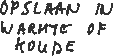 OPSLAAN IN
WARMTE OF
KOUDE